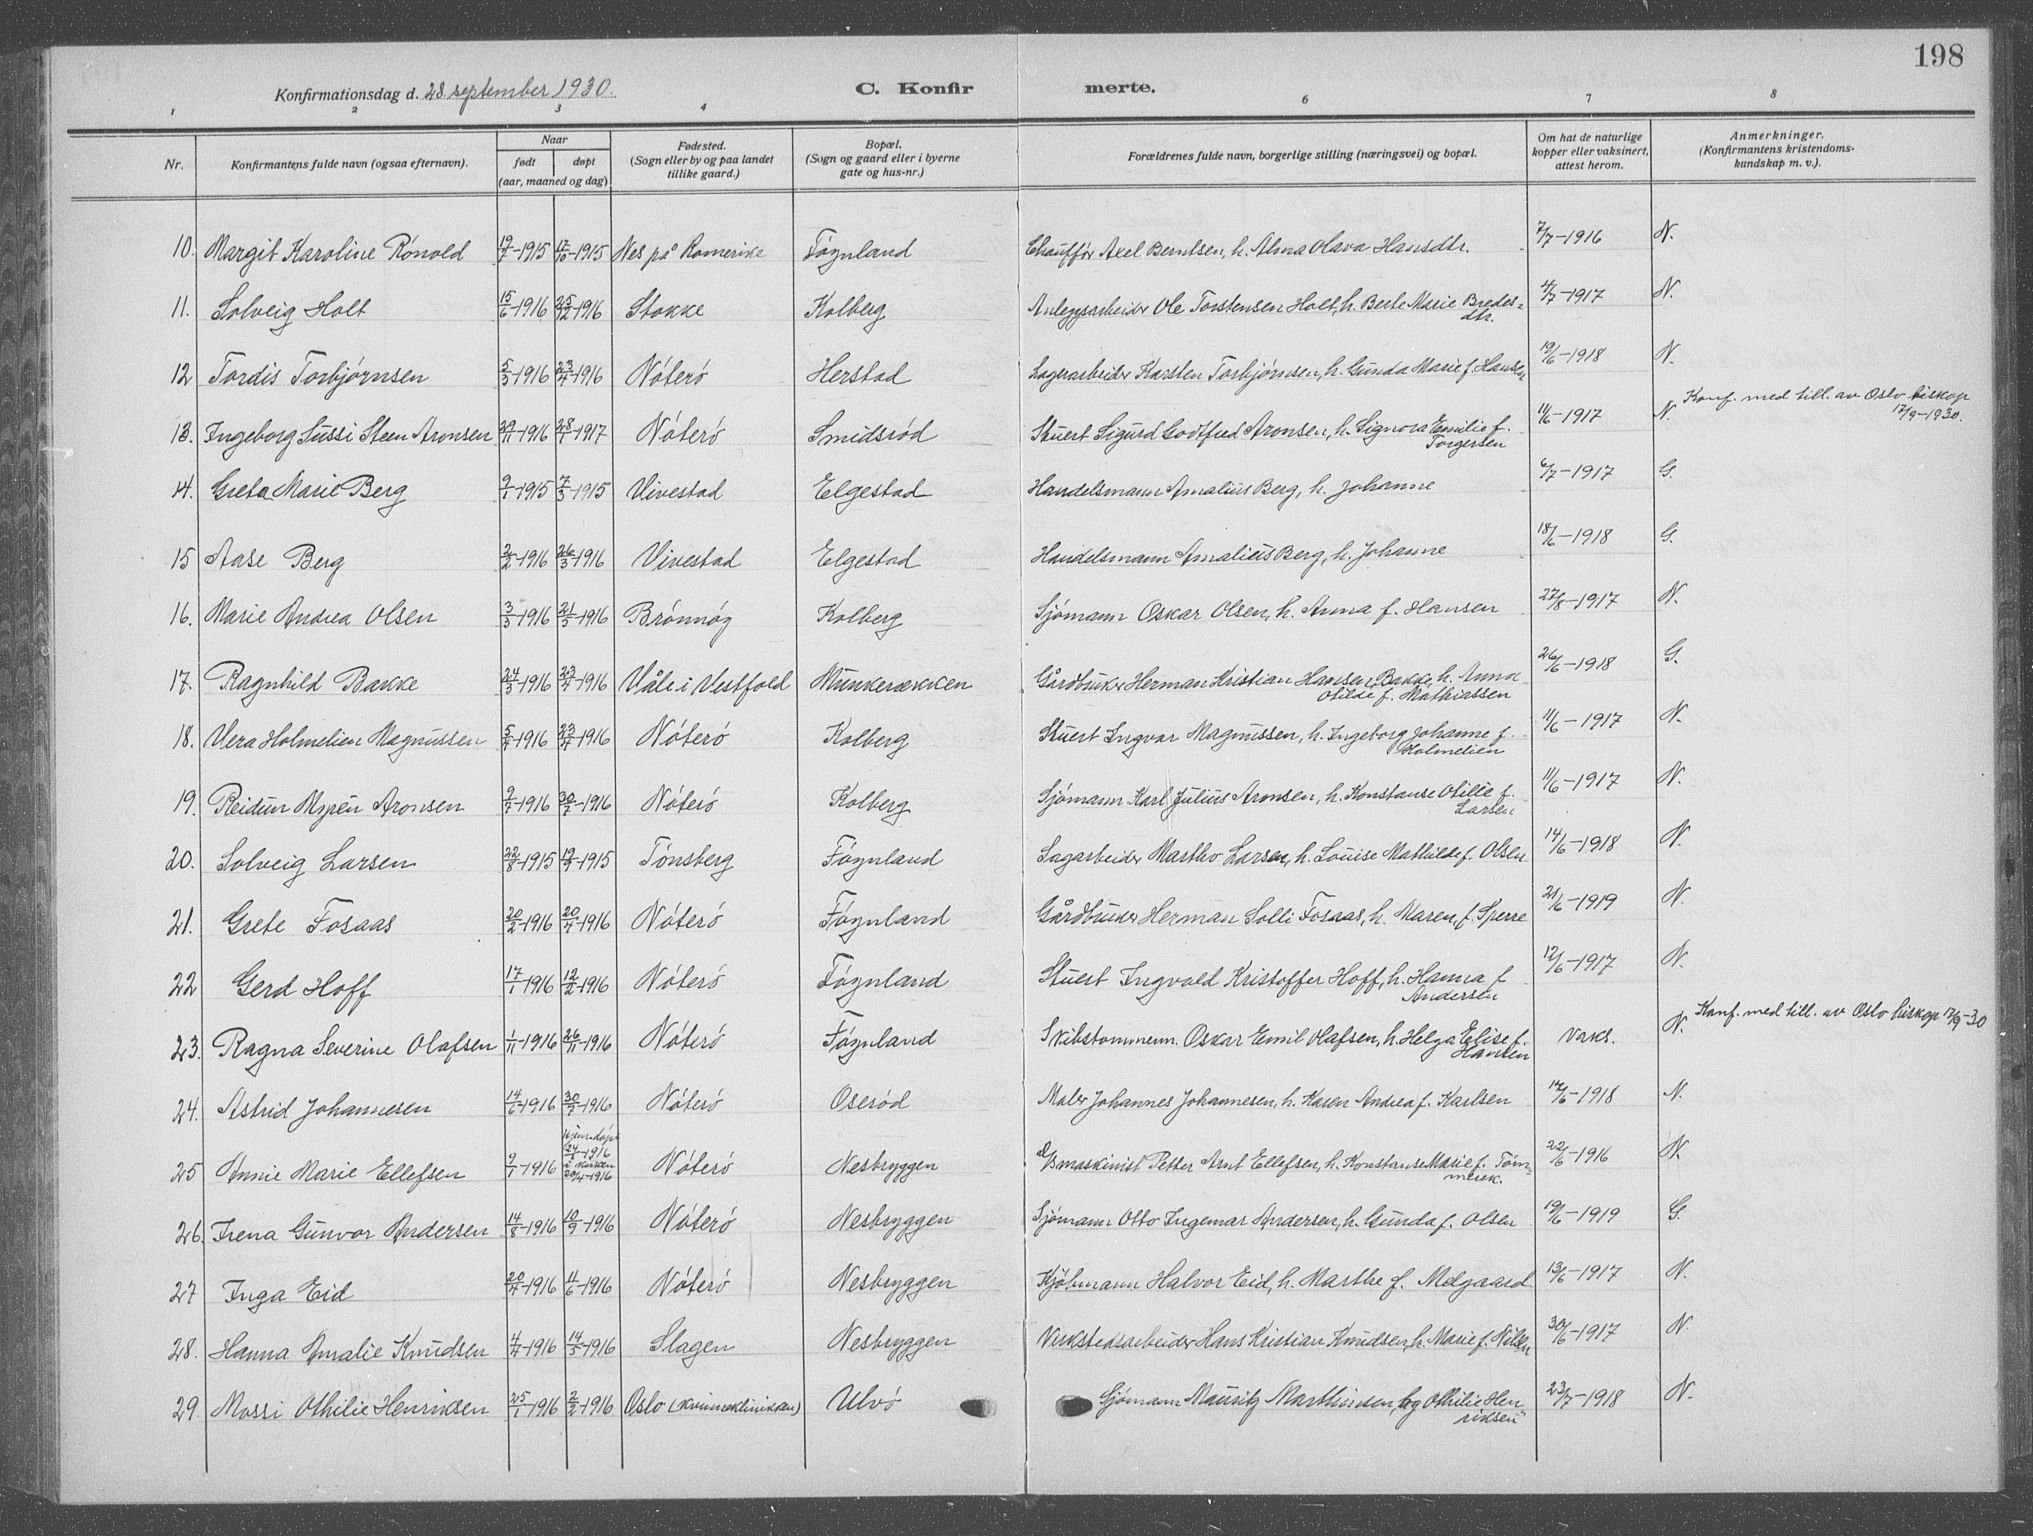 198
Konfirmationsdag d. 28 september 1930. C. Konfir merte.
1 2 3 4 6 7 8
Nr. Konfirmantens fulde navn (ogsaa efternavn). Naar født døpt (aar, maaned og dag) Fødested. (Sogn eller by og paa landet tillike gaard.) Bopæl. (Sogn og gaard eller i byerne gate og hus-nr.) Forældrenes fulde navn, borgerlige stilling (næringsvei) og bopæl. Om hat de naturlige kopper eller vaksinert, attest herom. Anmerkninger. (Konfirmantens kristendoms-kundskap m. v.).
10. Margit Karoline Rónold 19/7-1915 17/10-1915 Nes på Romerike Føynland Chauffør Axel Berntsen, h. Alma Olava Hansdtr. 7/7-1916 N.
11. Solveig Holt 15/6-1916 25/12-1916 Stokke Kolberg Anleggsarbeider Ole Torstensen Holt, h. Berte Marie Bredes-dtr. 4/7-1917 N.
12 Tordis Torbjørnsen 5/3-1916 23/4-1916 Nóteró Herstad Lagerarbeider Karsten Torbjørnsen, h. Gunda Marie f. Hansen 19/6-1918 N.
13. Ingeborg Sussi Steen Aronsen 29/11-1916 28/1-1917 Nóteró Smidsród Stuert Sigurd Godtfred Aronsen, h. Signora Emilie f. Torgersen 11/6-1917 N. Konf. med till. av Oslo biskop 17/9-1930.
14. Greta Marie Berg 9/1-1915 7/3-1915 Vivestad Elgestad Handelsmann Amalius Berg, h. Johanne 6/7-1917 G.
15 Aase Berg 2/2-1916 26/3-1916 Vivestad Elgestad Handelsmann Amalius Berg, h. Johanne 18/6-1918 G.
16. Marie Andrea Olsen 3/3-1916 21/5-1916 Brónnóy Kolberg Sjómann Oskar Olsen, h. Anna f. Hansen 27/8-1917 N.
17. Ragnhild Bakke 24/3-1916 23/4-1916 Våle i Vestfold Munkerækken Gårdbruker Herman Kristian Hansen Bakke, h. Anna Otilde f. Mathiassen 26/6-1918 G.
18. Vera Holmelien Magnussen 5/4-1916 23/4-1916 Nóteró Kolberg Stuert Ingvar Magnussen, h. Ingeborg Johanne f. Holmelien 11/6-1917 N.
19. Reidun Myren Aronsen 9/7-1916 30/7-1916 Nóteró Kolberg Sjómann Karl Julius Aronsen, h. Konstanse Otilie f. Larsen 11/6-1917 N.
20. Solveig Larsen 22/8-1915 19/9-1915 Tónsberg Føynland Sagarbeider Martho Larsen, h. Louise Mathilde f. Olsen 14/6-1918 N.
21. Grete Fosaas 20/2-1916 20/4-1916 Nóteró Føynland Gårdbruker Herman Solli Fosaas, h. Maren, f. Sperre 21/6-1919 N.
22 Gerd Hoff 17/1-1916 12/2-1916 Nóteró Føynland Stuert Ingvald Kristoffer Hoff, h. Hanna f. Andersen 12/6-1917 N.
23. Ragna Severine Olafsen 1/11-1916 26/11-1916 Nóteró Føynland Skibstømmerm. Oskar Emil Olafsen, h. Helga Elise f. Hansen vaks. N. Konf. med till. av Oslo biskop 17/9-30
24. Astrid Johannesen 14/6-1916 30/7-1916 Nóteró Oseród Maler Johannes Johannesen, h. Karen Andrea f. Karlsen 14/6-1918 N.
25 Annie Marie Ellefsen 9/1-1916 Hjemmedøpt 24/1-1916 i kirken 20/4-1916 Nóteró Nesbryggen Dsmaskinist Petter Arnt Ellefsen, h. Konstanse Marie f. Tóm-merek. 22/6-1916 N.
26. Irena Gunvor Andersen 14/8-1916 10/9-1916 Nóteró Nesbryggen Sjómann Otto Ingemar Andersen, h. Gunda f. Olsen 19/6-1919 G.
27 Inga Eid 20/4-1916 11/6-1916 Nóteró Nesbryggen Kjóbmann Halvor Eid, h. Marthe f. Melgaard 13/6-1917 N.
28. Hanna Amalie Knudsen 4/4-1916 14/5-1916 Slagen Nesbryggen Verkstedsarbeider Hans Kristian Knudsen, h. Marie f. Nilsen 30/6-1917 N.
29. Mossi Othilie Henriksen 25/1-1916 2/2-1916 Oslo (Kvinneklinikken) Ulvó Sjómann Mauritz Marthinsen, og Othilie Hen riksen" 23/7-1918 N.